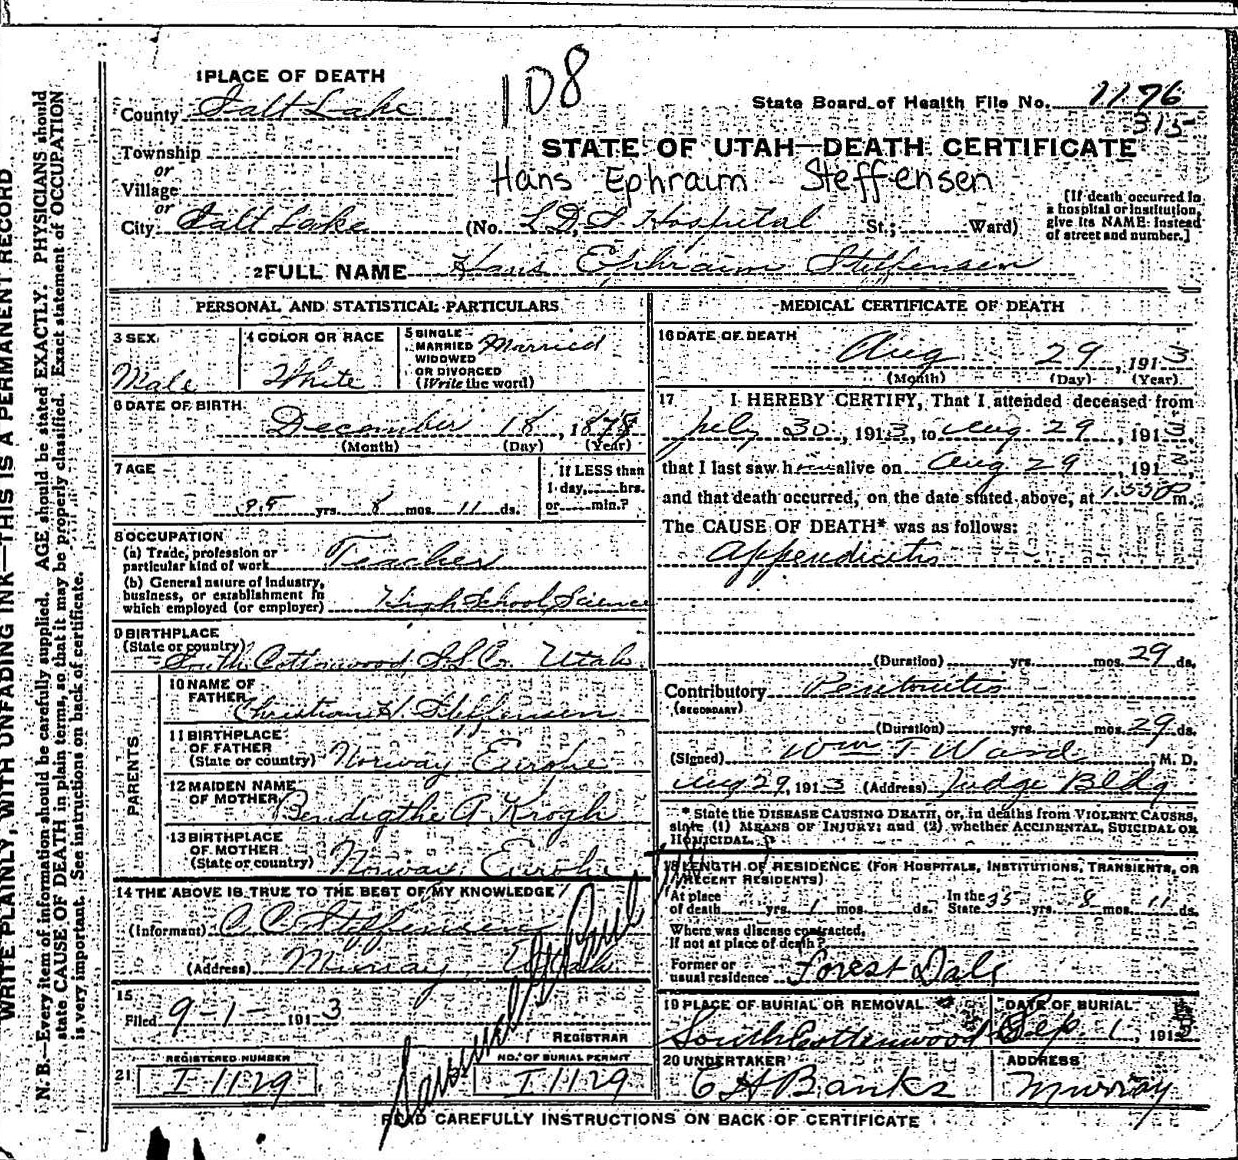 108
1 PLACE OF DEATH
County Salt Lake
State Board of Health File No. 1176
315
Township
or
STATE OF UTAH—DEATH CERTIFICATE
Village
Hans Ephraim Steffensen
or
City Salt Lake (No. L.D.S Hospital St.; Ward)
[If death occurred in
a hospital or institution,
give its NAME instead
of street and number.]
2 FULL NAME Hans Ephraim Steffensen
PERSONAL AND STATISTICAL PARTICULARS
3 SEX
Male
4 COLOR OR RACE
White
5 SINGLE
MARRIED
WIDOWED
OR DIVORCED
(Write the word)
Married
6 DATE OF BIRTH
December 18, 1878
(Month) (Day) (Year)
7 AGE
yrs. 8 mos. 11 ds.
If LESS than
1 day, hrs.
or min.?
8 OCCUPATION
(a) Trade, profession or
particular kind of work Teacher
(b) General nature of industry,
business, or establishment in
which employed (or employer) High School Science
9 BIRTHPLACE
(State or country)
South Cottonwood, S.L.Co. Utah
PARENTS
10 NAME OF
FATHER
Christian H. Steffensen
11 BIRTHPLACE
OF FATHER
(State or country) Norway Europe
12 MAIDEN NAME
OF MOTHER Bendigthe A. Krogh
13 BIRTHPLACE
OF MOTHER
(State or country) Norway, Europe
14 THE ABOVE IS TRUE TO THE BEST OF MY KNOWLEDGE
(Informant) C. C. Steffensen
(Address) Murray, Utah
15
Filed 9-1- 1913
REGISTRAR
21 REGISTERED NUMBER
I 1129
NO. OF BURIAL PERMIT
I 1129
MEDICAL CERTIFICATE OF DEATH
16 DATE OF DEATH
Aug 29, 1913
(Month) (Day) (Year)
17 I HEREBY CERTIFY, That I attended deceased from
July 30, 1913, to Aug. 29, 191
that I last saw h alive on Aug 29, 191
and that death occurred, on the date stated above, at m.
The CAUSE OF DEATH* was as follows:
Appendicitis
(Duration) yrs. mos. 29 ds.
Contributory Peritonitis
(SECONDARY)
(Duration) yrs. mos. 29 ds.
(Signed) Wm T Ward M. D.
Aug 29, 1913 (Address) Judge Bldg
* State the DISEASE CAUSING DEATH, or, in deaths from VIOLENT CAUSES,
state (1) MEANS OF INJURY; and (2) whether ACCIDENTAL, SUICIDAL OR
HOMICIDAL.
18 LENGTH OF RESIDENCE (FOR HOSPITALS, INSTITUTIONS, TRANSIENTS, OR
RECENT RESIDENTS)
At place
of death yrs. 1 mos. ds. In the
State 35 yrs. 8 mos. 11 ds.
Where was disease contracted,
If not at place of death?
Former or
usual residence Forest Dale
19 PLACE OF BURIAL OR REMOVAL
South Cottonwood
DATE OF BURIAL
Sep 1, 191
20 UNDERTAKER
C H Banks
ADDRESS
Murray
READ CAREFULLY INSTRUCTIONS ON BACK OF CERTIFICATE
WRITE PLAINLY, WITH UNFADING INK—THIS IS A PERMANENT RECORD
N. B.—Every item of information should be carefully supplied. AGE should be stated EXACTLY. PHYSICIANS should
state CAUSE OF DEATH in plain terms, so that it may be properly classified. Exact statement of OCCUPATION
is very important. See instructions on back of certificate.